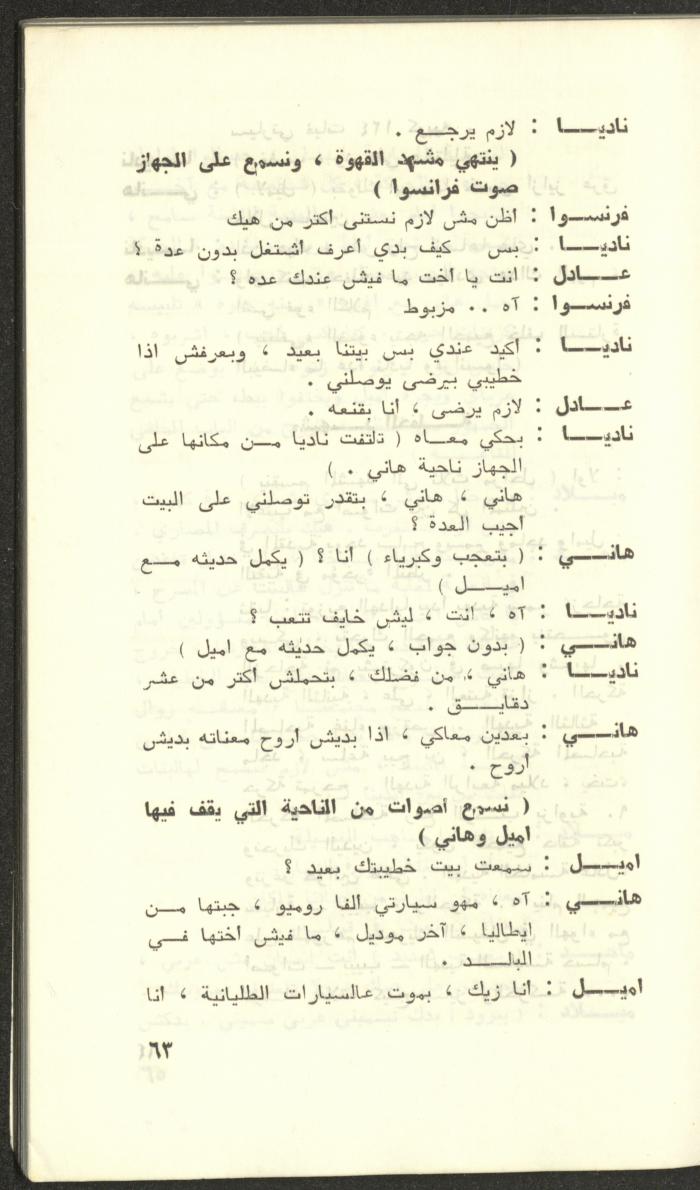 ناديـــا : لازم يرجـــع .
( ينتهي مشهد القهوة ، ونسمع على الجهاز
صوت فرانسوا )
فرنســوا : اظن مش لازم نستنى اكتر من هيك
ناديـــا : بس كيف بدي أعرف اشتغل بدون عدة ؟
عـــادل : انت يا اخت ما فيش عندك عده ؟
فرنســوا : آه .. مزبوط
ناديـــا : اكيد عندي بس بيتنا بعيد ، وبعرفش اذا
خطيبي بيرضى يوصلني .
عـــادل : لازم يرضى ، أنا بقنعه .
ناديـــا : بحكي معـــاه ( تلتفت ناديا مـــن مكانها على
الجهاز ناحية هاني . )
هاني ، هاني ، بتقدر توصلني على البيت
اجيب العدة ؟
هانـــي : ( بتعجب وكبرياء ) انا ؟ ( يكمل حديثه مـــع
اميـــل )
ناديـــا : آه ، انت ، ليش خايف تتعب ؟
هانـــي : ( بدون جواب ، يكمل حديثه مع اميل )
ناديـــا : هاني ، من فضلك ، بتحملش اكتر من عشر
دقايـــق .
هانـــي : بعدين معاكي ، اذا بديش اروح معناته بديش
أروح .
( نسمع أصوات من الناحية التي يقف فيها
اميل وهاني )
اميـــل : سمعت بيت خطيبتك بعيد ؟
هانـــي : آه ، مهو سيارتي الفا روميو ، جبتها مـــن
ايطاليا ، آخر موديل ، ما فيش اختها فـــي
البالـــد .
اميـــل : أنا زيك ، بموت عالسيارات الطليانية ، أنا
٦٣